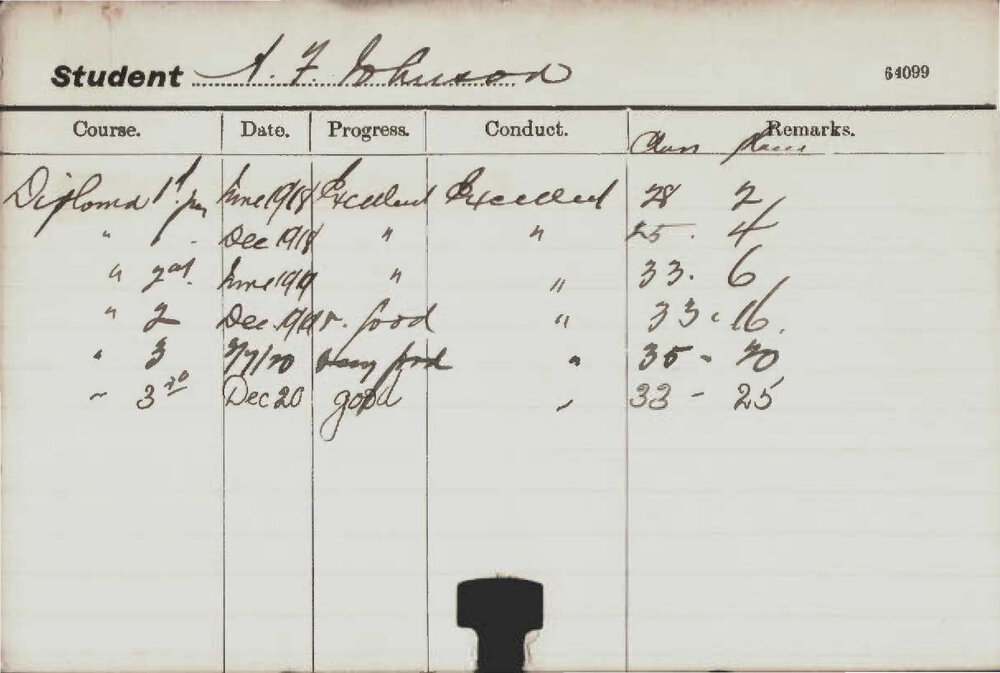 Student A. F. Johnson 64099
Course. Date. Progress. Conduct. Remarks.
Class Place
Diploma 1st yr June 1918 Excellent Excellent 28 2
" 1 . Dec 1918 " " 25 . 4
" 2nd. June 1919 " " 33 . 6
" 2 Dec. 1919 v. good " 33 . 16.
" 3 7/20 very good " 35 - 20
" 3rd Dec 20 good " 33 - 25